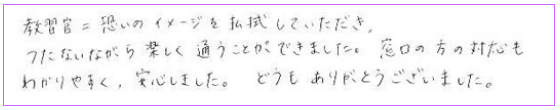 教習官=恐いのイメージを払拭していただき、
つたないながら楽しく通うことができました。窓口の方の対応も
わかりやすく、安心しました。どうもありがとうございました。